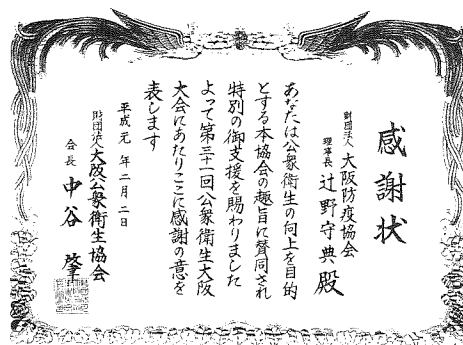 感謝状
財団法人 大阪防疫協会
理事長 辻野守典殿
あなたは公衆衛生の向上を目的
とする本協会の趣旨に賛同され
特別の御支援を賜わりました
よって第三十一回公衆衛生大阪
大会にあたりここに感謝の意を
表します
平成元年二月二日
財団法人 大阪公衆衛生協会
会長 中谷 肇